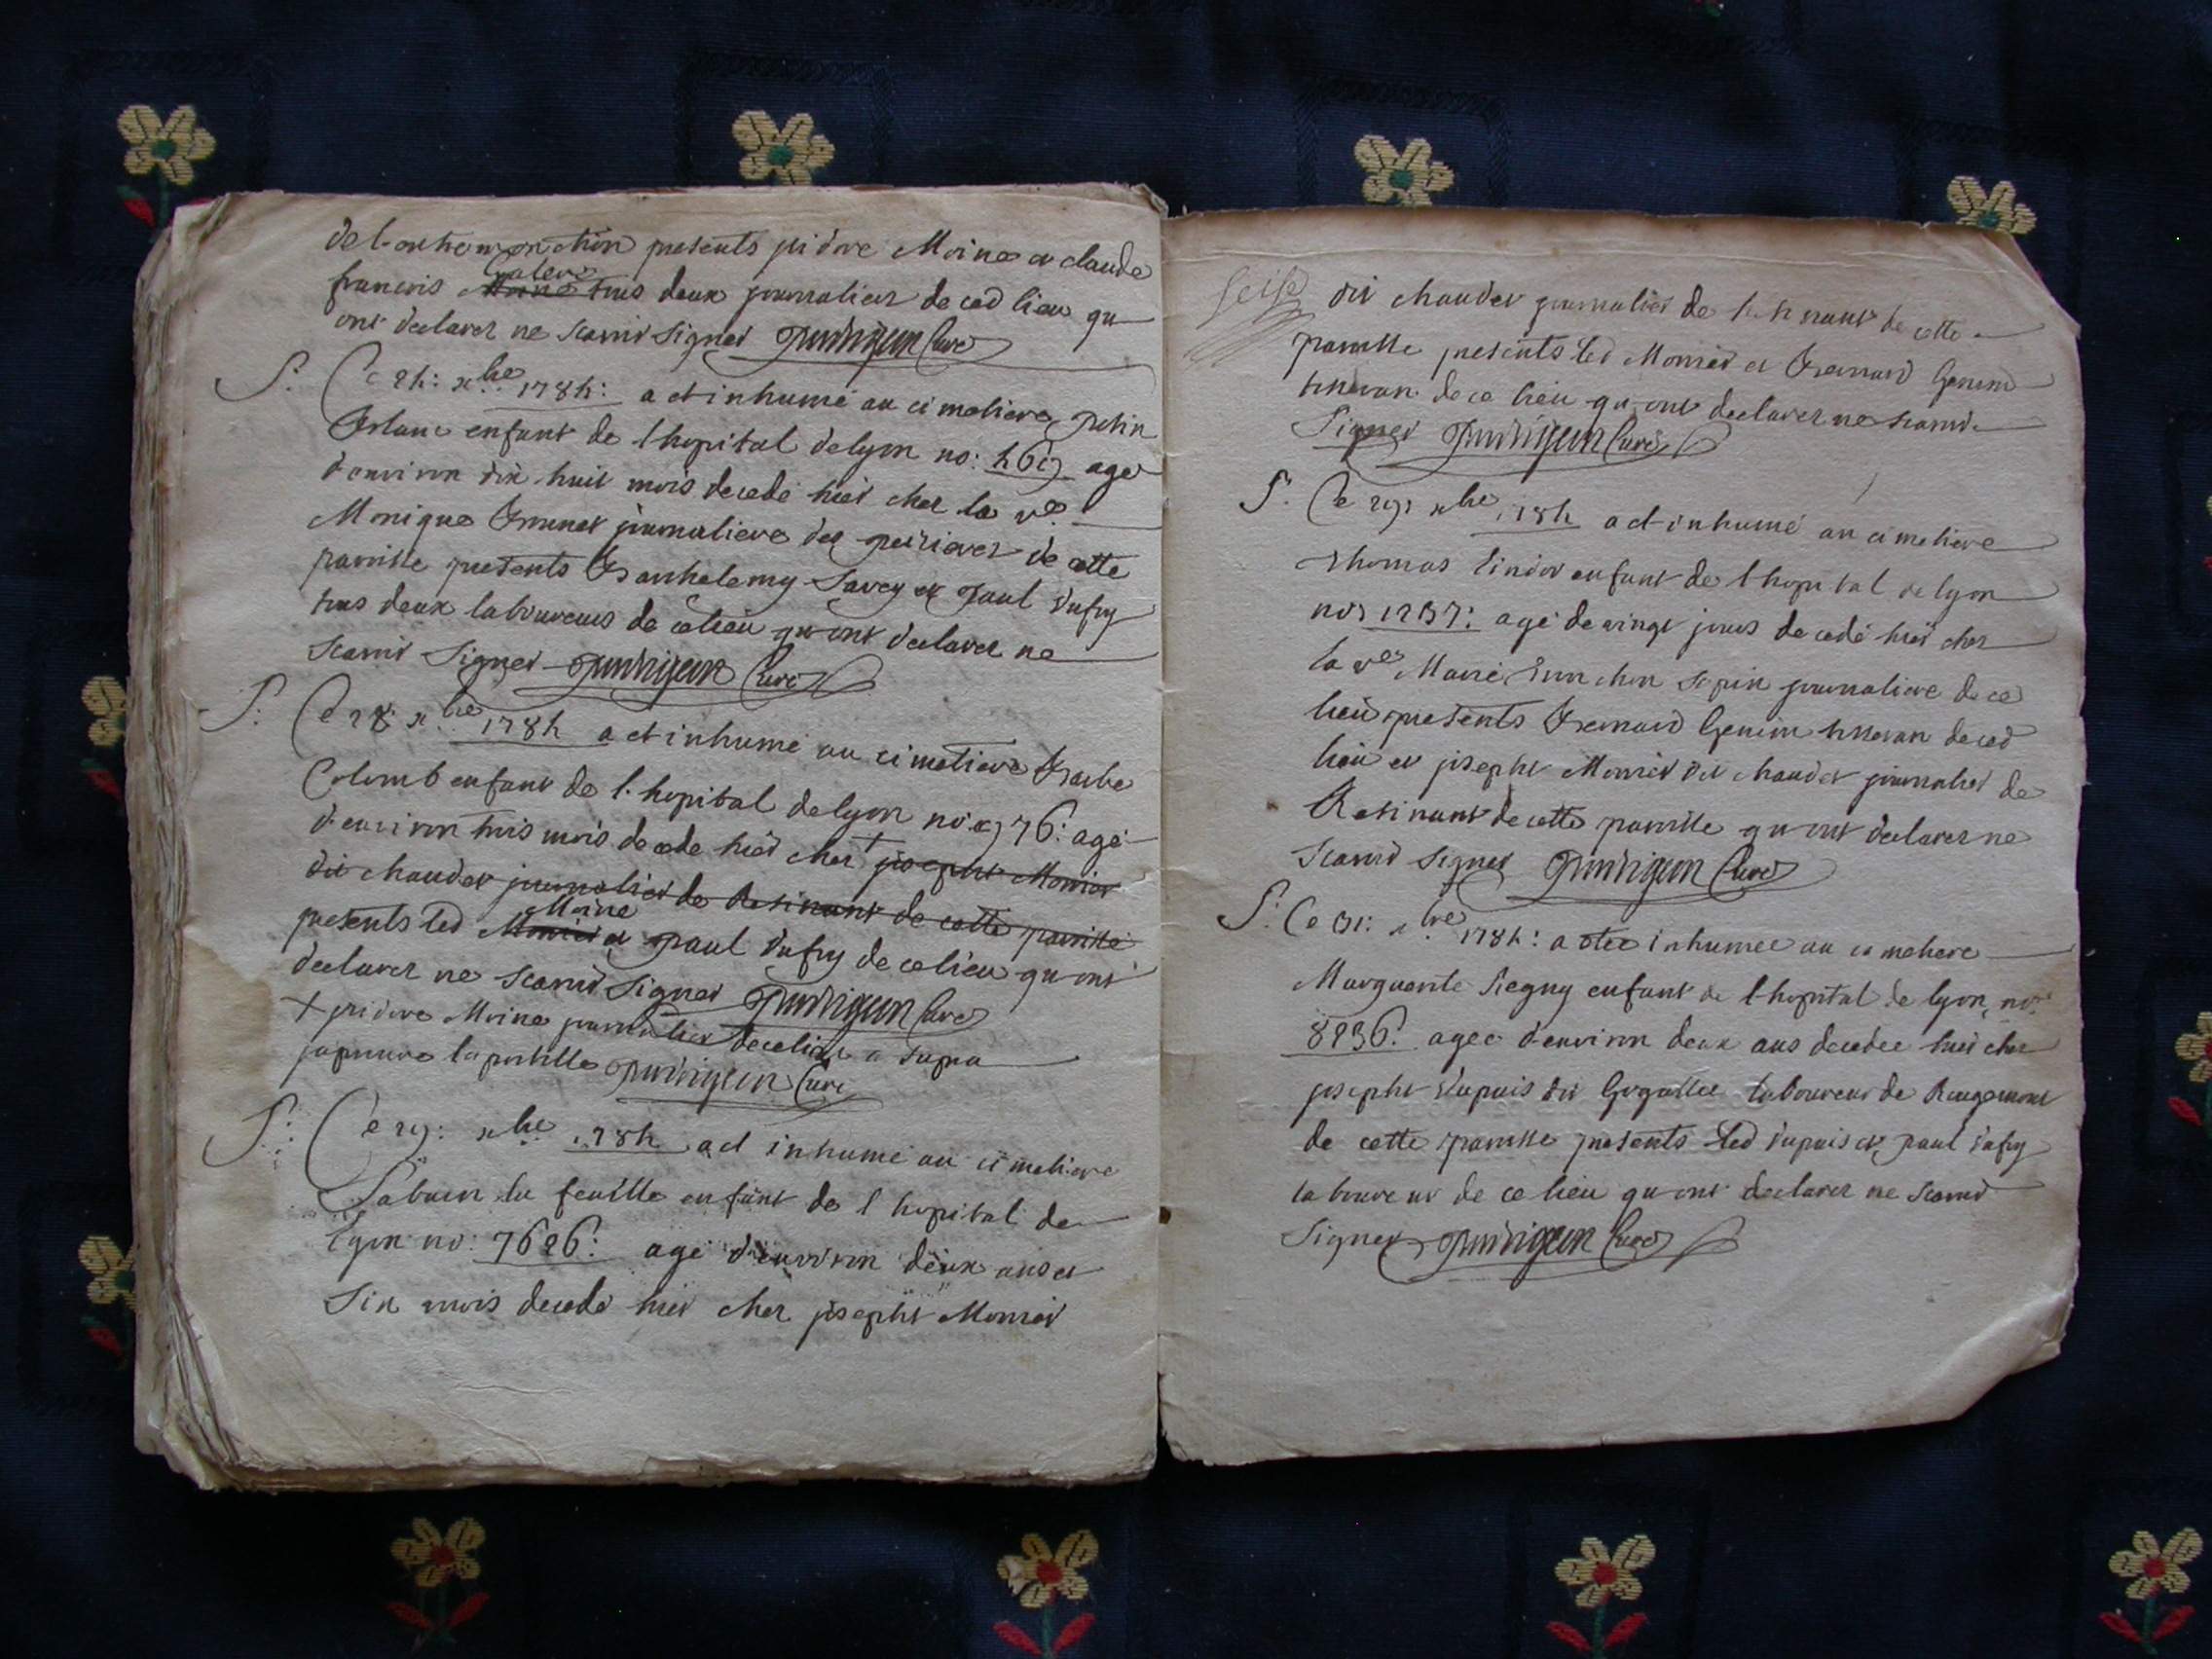 presents pidore Moine et claude
francois Moine tous deux journalier de ced lieu qu
ont declarer ne scavoir signer Curé
S. Ce 24: xbre 1784: a et inhumé au cimetiere
enfant de l hopital de lyon no: agé
d'environ dix huit mois decedé hier cher la ve
Monique Brunet journaliere des de cette
paroisse presents Barthelemy Savey et paul dufey
tous deux laboureurs de ce lieu qu ont declarer ne
scavoir signer Curé
S. Ce 28 xbre 1784 a et inhumé au cimetiere Barbe
Colomb enfant de l'hopital de lyon no: 976: agé
d'environ trois mois decede hier cher + josepht Monier
dit chaudet journalier de Resinant de cette paroisse
Moine
presents led Monier et paul dufey de ce lieu qu ont
declarer ne scavoir signer Curé
+ pidore Moine journalier de ce lieu
japrouve la postille Curé
S. Ce 29: xbre 1784 a et inhumé au cimetiere
la feuille enfant de l hopital de
lyon no: 7626: agé d'environ deux ans et
six mois decedé hier cher josepht Monier
dit chaudet journalier de de cette
paroisse presents led Monier et Bernard Genin
tisseran de ce lieu qu ont declarer ne scavoir
signer Curé
S. Ce 29: xbre 1784 a et inhumé au cimetiere
thomas enfant de l hopital de lyon
no: 1237: agé de vingt jours decedé hier cher
la ve Marie journaliere de ce
lieu presents Bernard Genin tisseran de ced
lieu et josepht Monier dit chaudet journalier de
Resinant de cette paroisse qu ont declarer ne
scavoir signer Curé
S: Ce 31: xbre 1784: a etee inhumee au cimetiere
Marguerite enfant de l hopital de lyon, no:
8236: agee d'environ deux ans decedee hier cher
josepht dupuis dit laboureur de Rougemont
de cette paroisse presents led dupuis et paul dufey
laboureur de ce lieu qu ont declarer ne scavoir
signer Curé